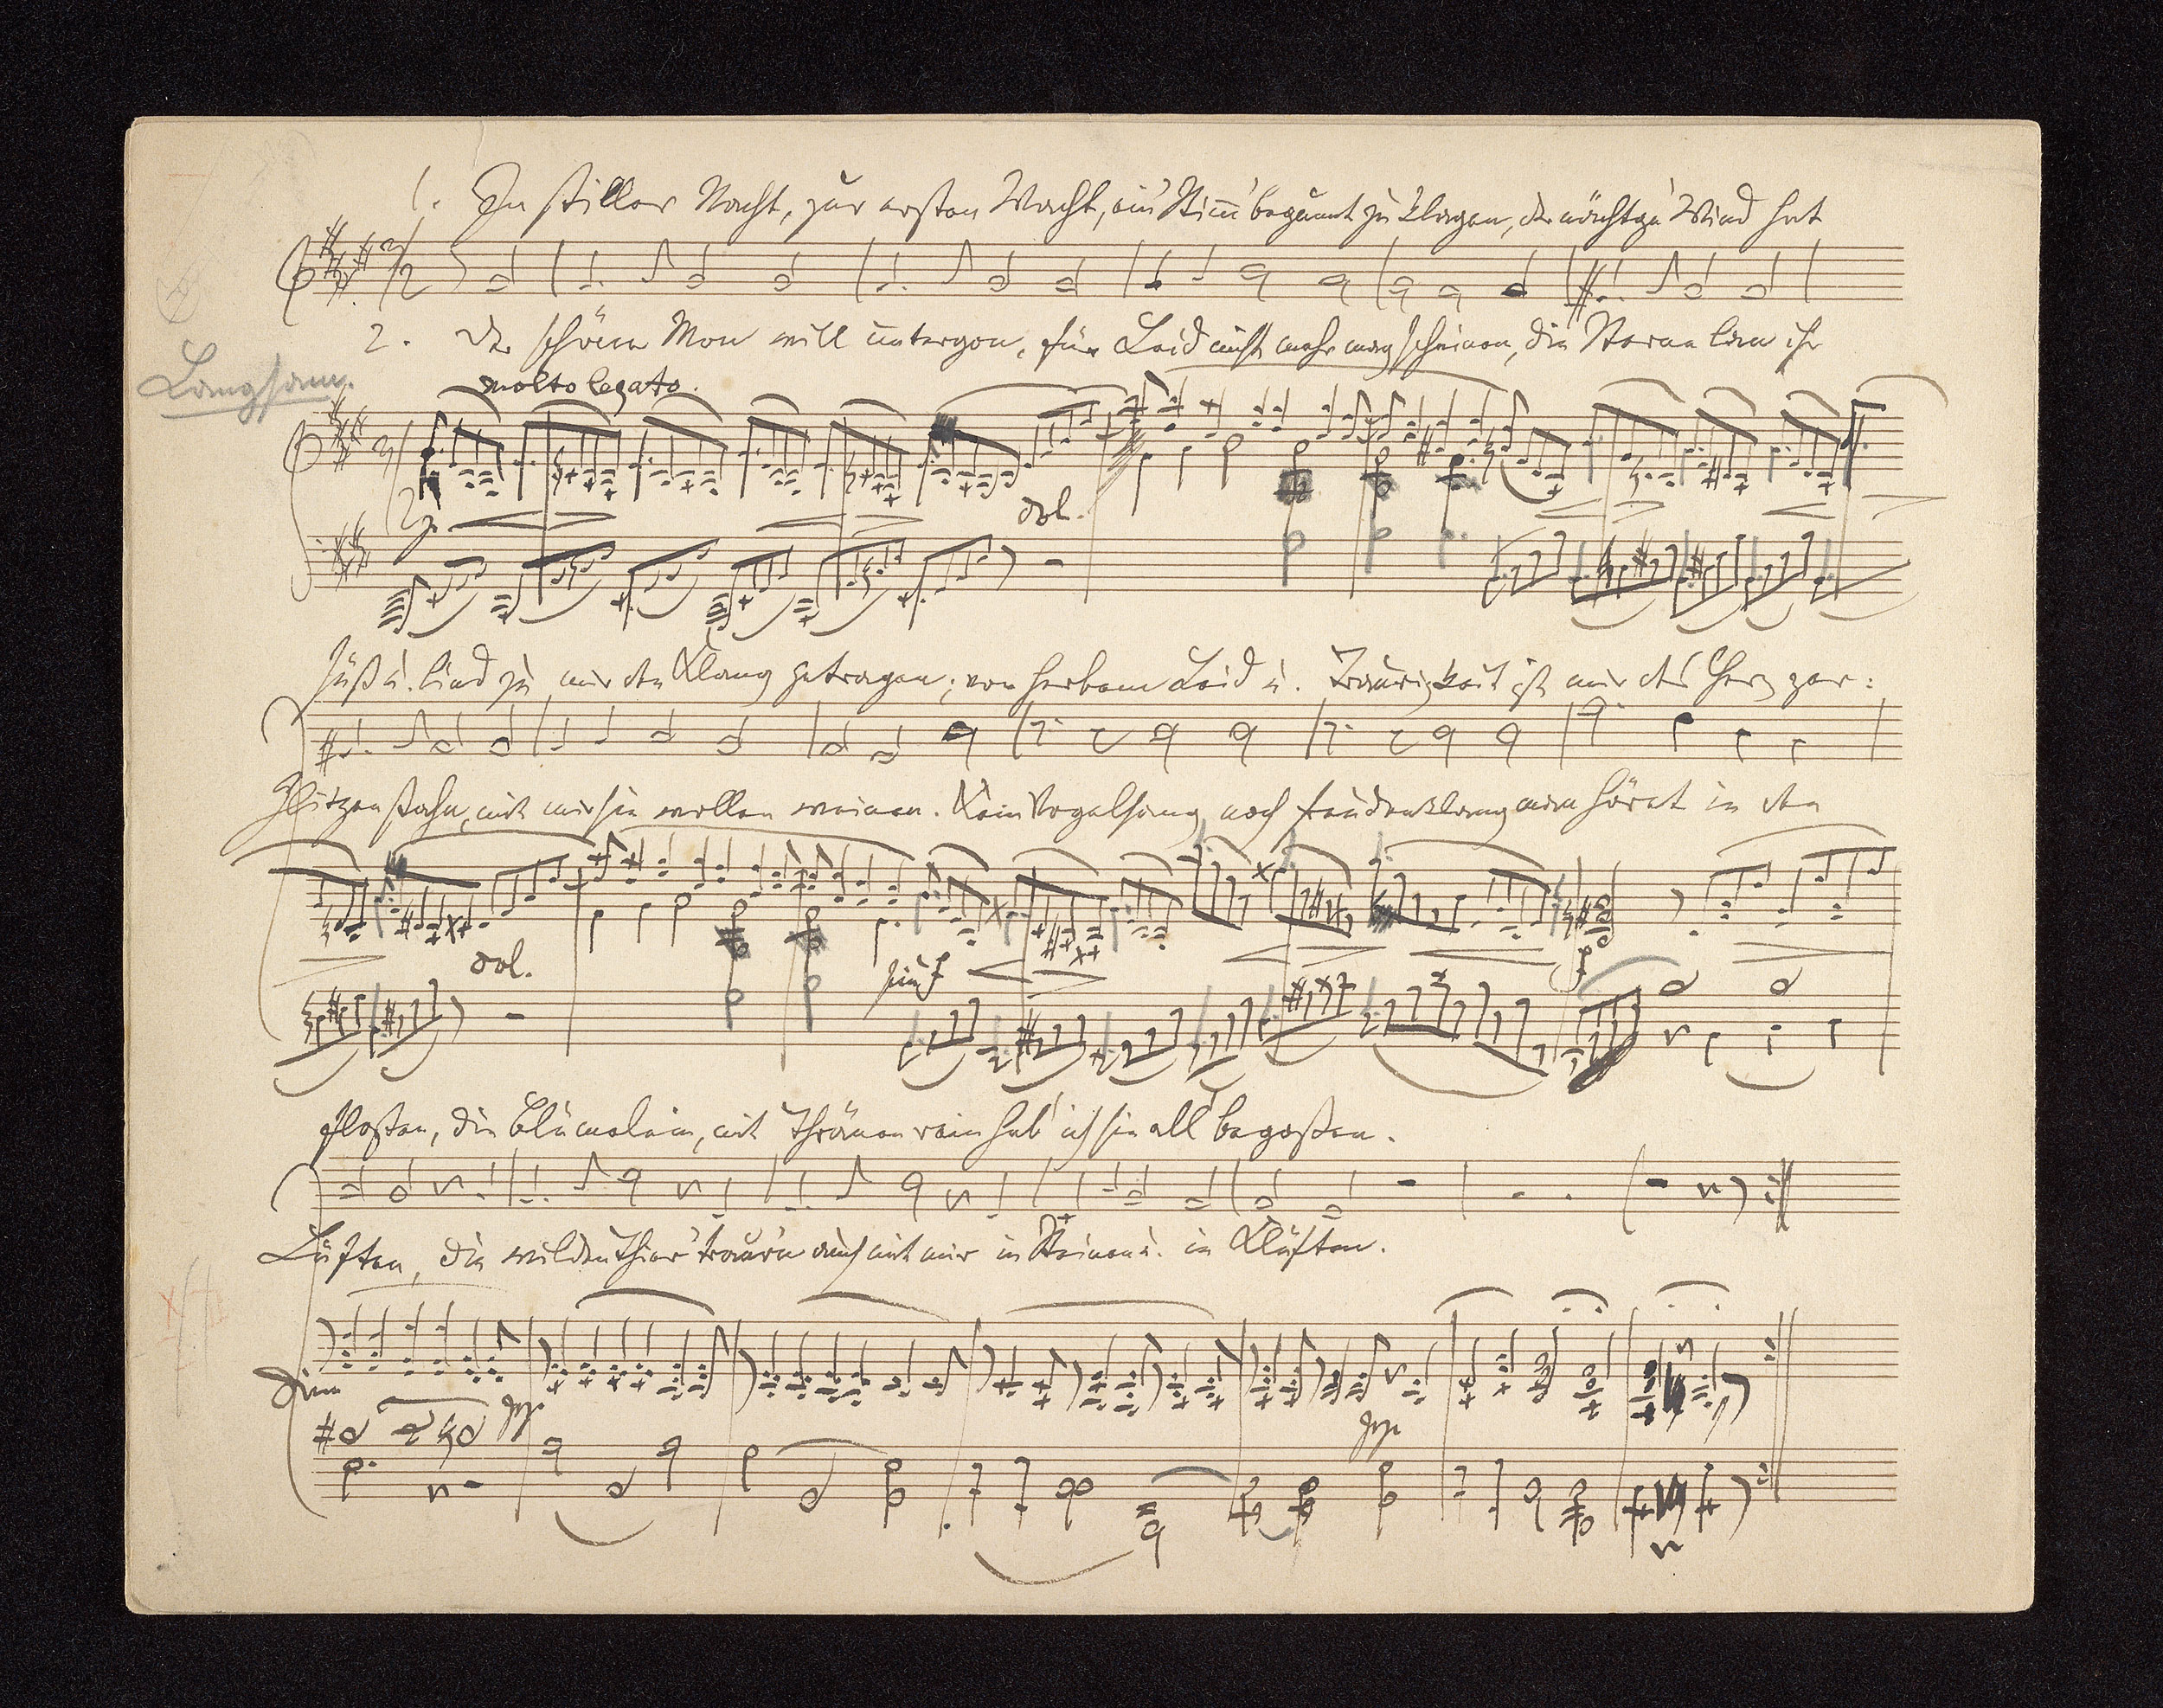 1. In stiller Nacht, zur ersten Wacht, ein' Stimm' begunnt zu klagen, der nächtge Wind hat
2. Der schöne Mon will untergon, für Leid nicht mehr mag scheinen, die Sterne lan ihr
Langsam.
molto legato.
p.
dol.
süß u. lind zu mir den Klang getragen; von herbem Leid u. Traurigkeit ist mir das Herz zer:
Glitzen stahn, mit mir sie wollen weinen. Kein Vogelsang noch Freudenklang man höret in den
dol.
p
floßen, die Blümelein, mit Thränen rein hab' ich sie all' begoßen.
Lüften, die wilden Thier' traur'n auch mit mir in Steinen u. in Klüften.
dim
pp
pp